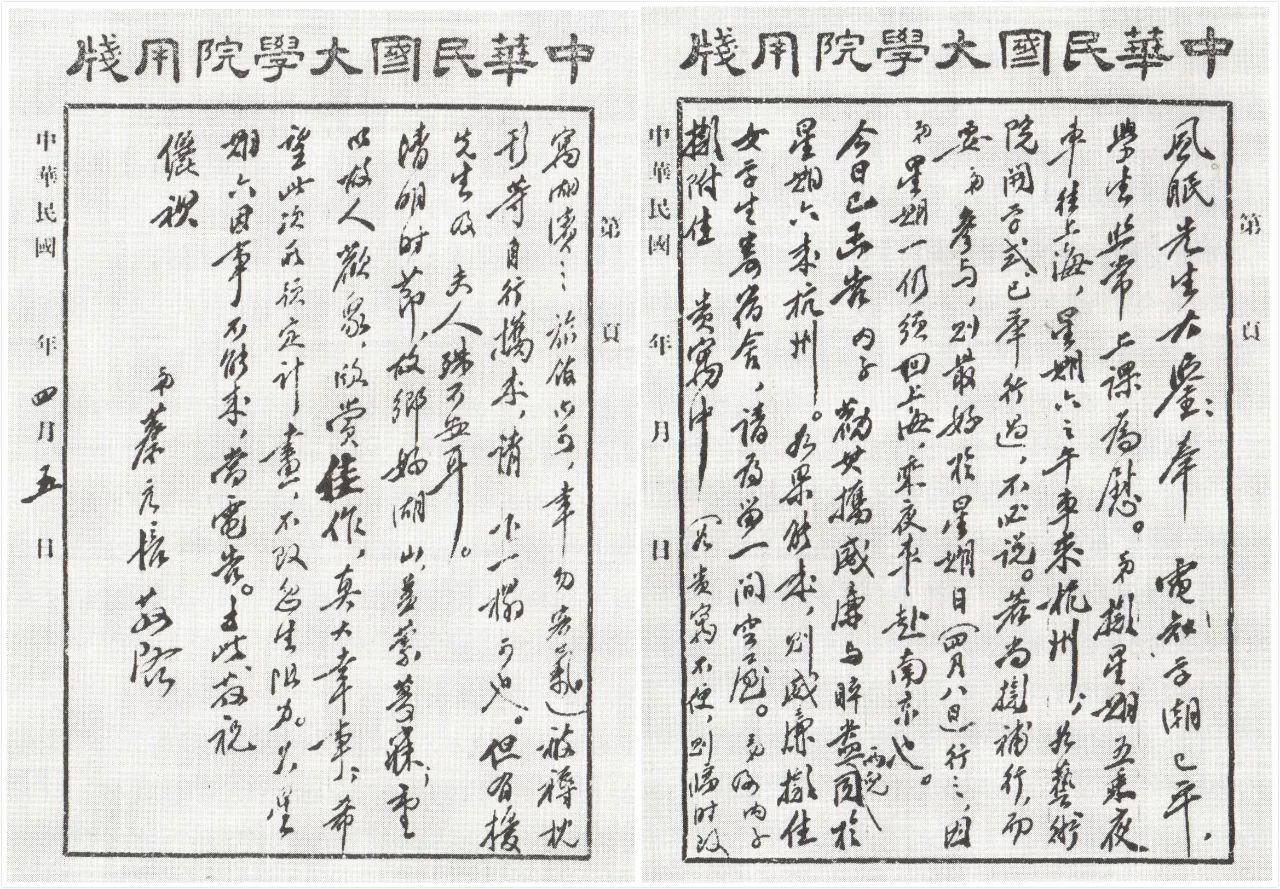 中華民國大學院用牋
第 頁
風眠先生大鑒：奉 電知學潮已平，
學生照常上課為慰。弟擬星期五乘夜
車往上海，星期六之午車來杭州；如藝術
院開学式已舉行過，不必説。若尚擬補行，而
要弟參与，則最好於星期日（四月八日）行之，因
弟星期一仍須回上海，乘夜車赴南京也。
今日已函告內子勸其攜威廉与睟盎兩兒同於
星期六來杭州。如果能來，則威廉擬住
女学生寄宿舍，請為留一間空屋。弟及內子
擬附住 貴寓中（若貴寓不便，則臨時改
中華民國 年 月 日
中華民國大學院用牋
第 頁
寓湖濱之旅館亦可，幸勿客氣）被褥枕
等自行攜來，請下一榻可也。但有擾
先生及 夫人殊不安耳。
清明時節，故鄉好湖山，益縈夢寐；重
以故人歡聚，欣賞佳作，真大幸事；希
望此次所預定計畫，不致忽生阻力。如星
期六因事不能來，當電告。專此敬祝
儷祺
弟蔡元培敬啓
中華民國 年四月五日